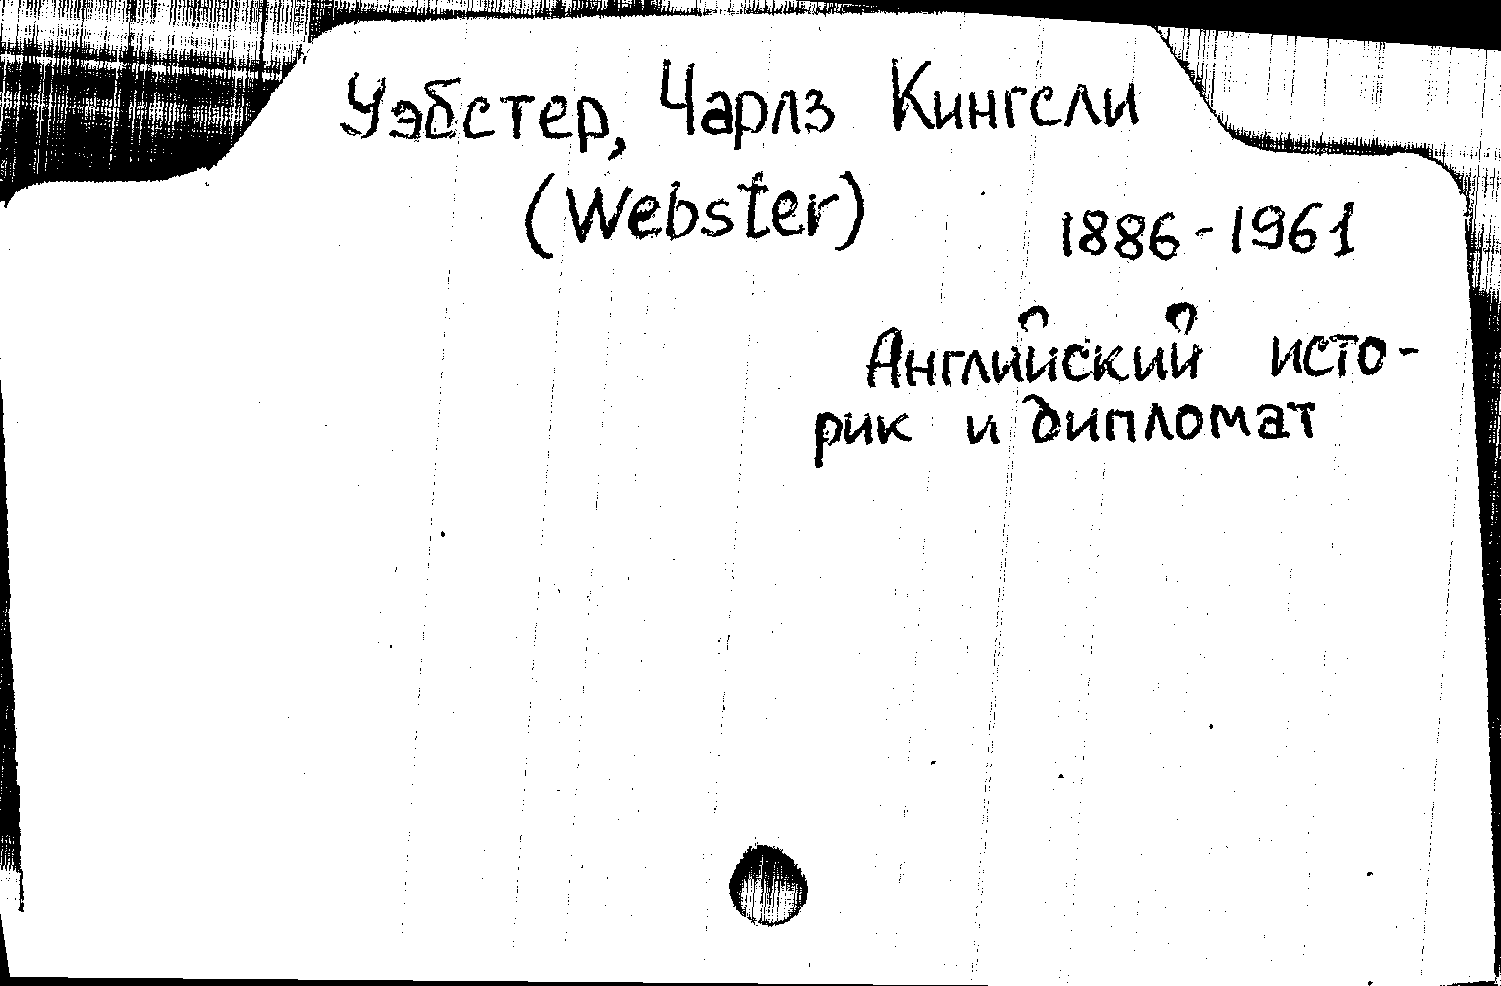 Уэбстер, Чарлз Кингсли
(Webster)
1886-1961
Английский исто-
рик и дипломат